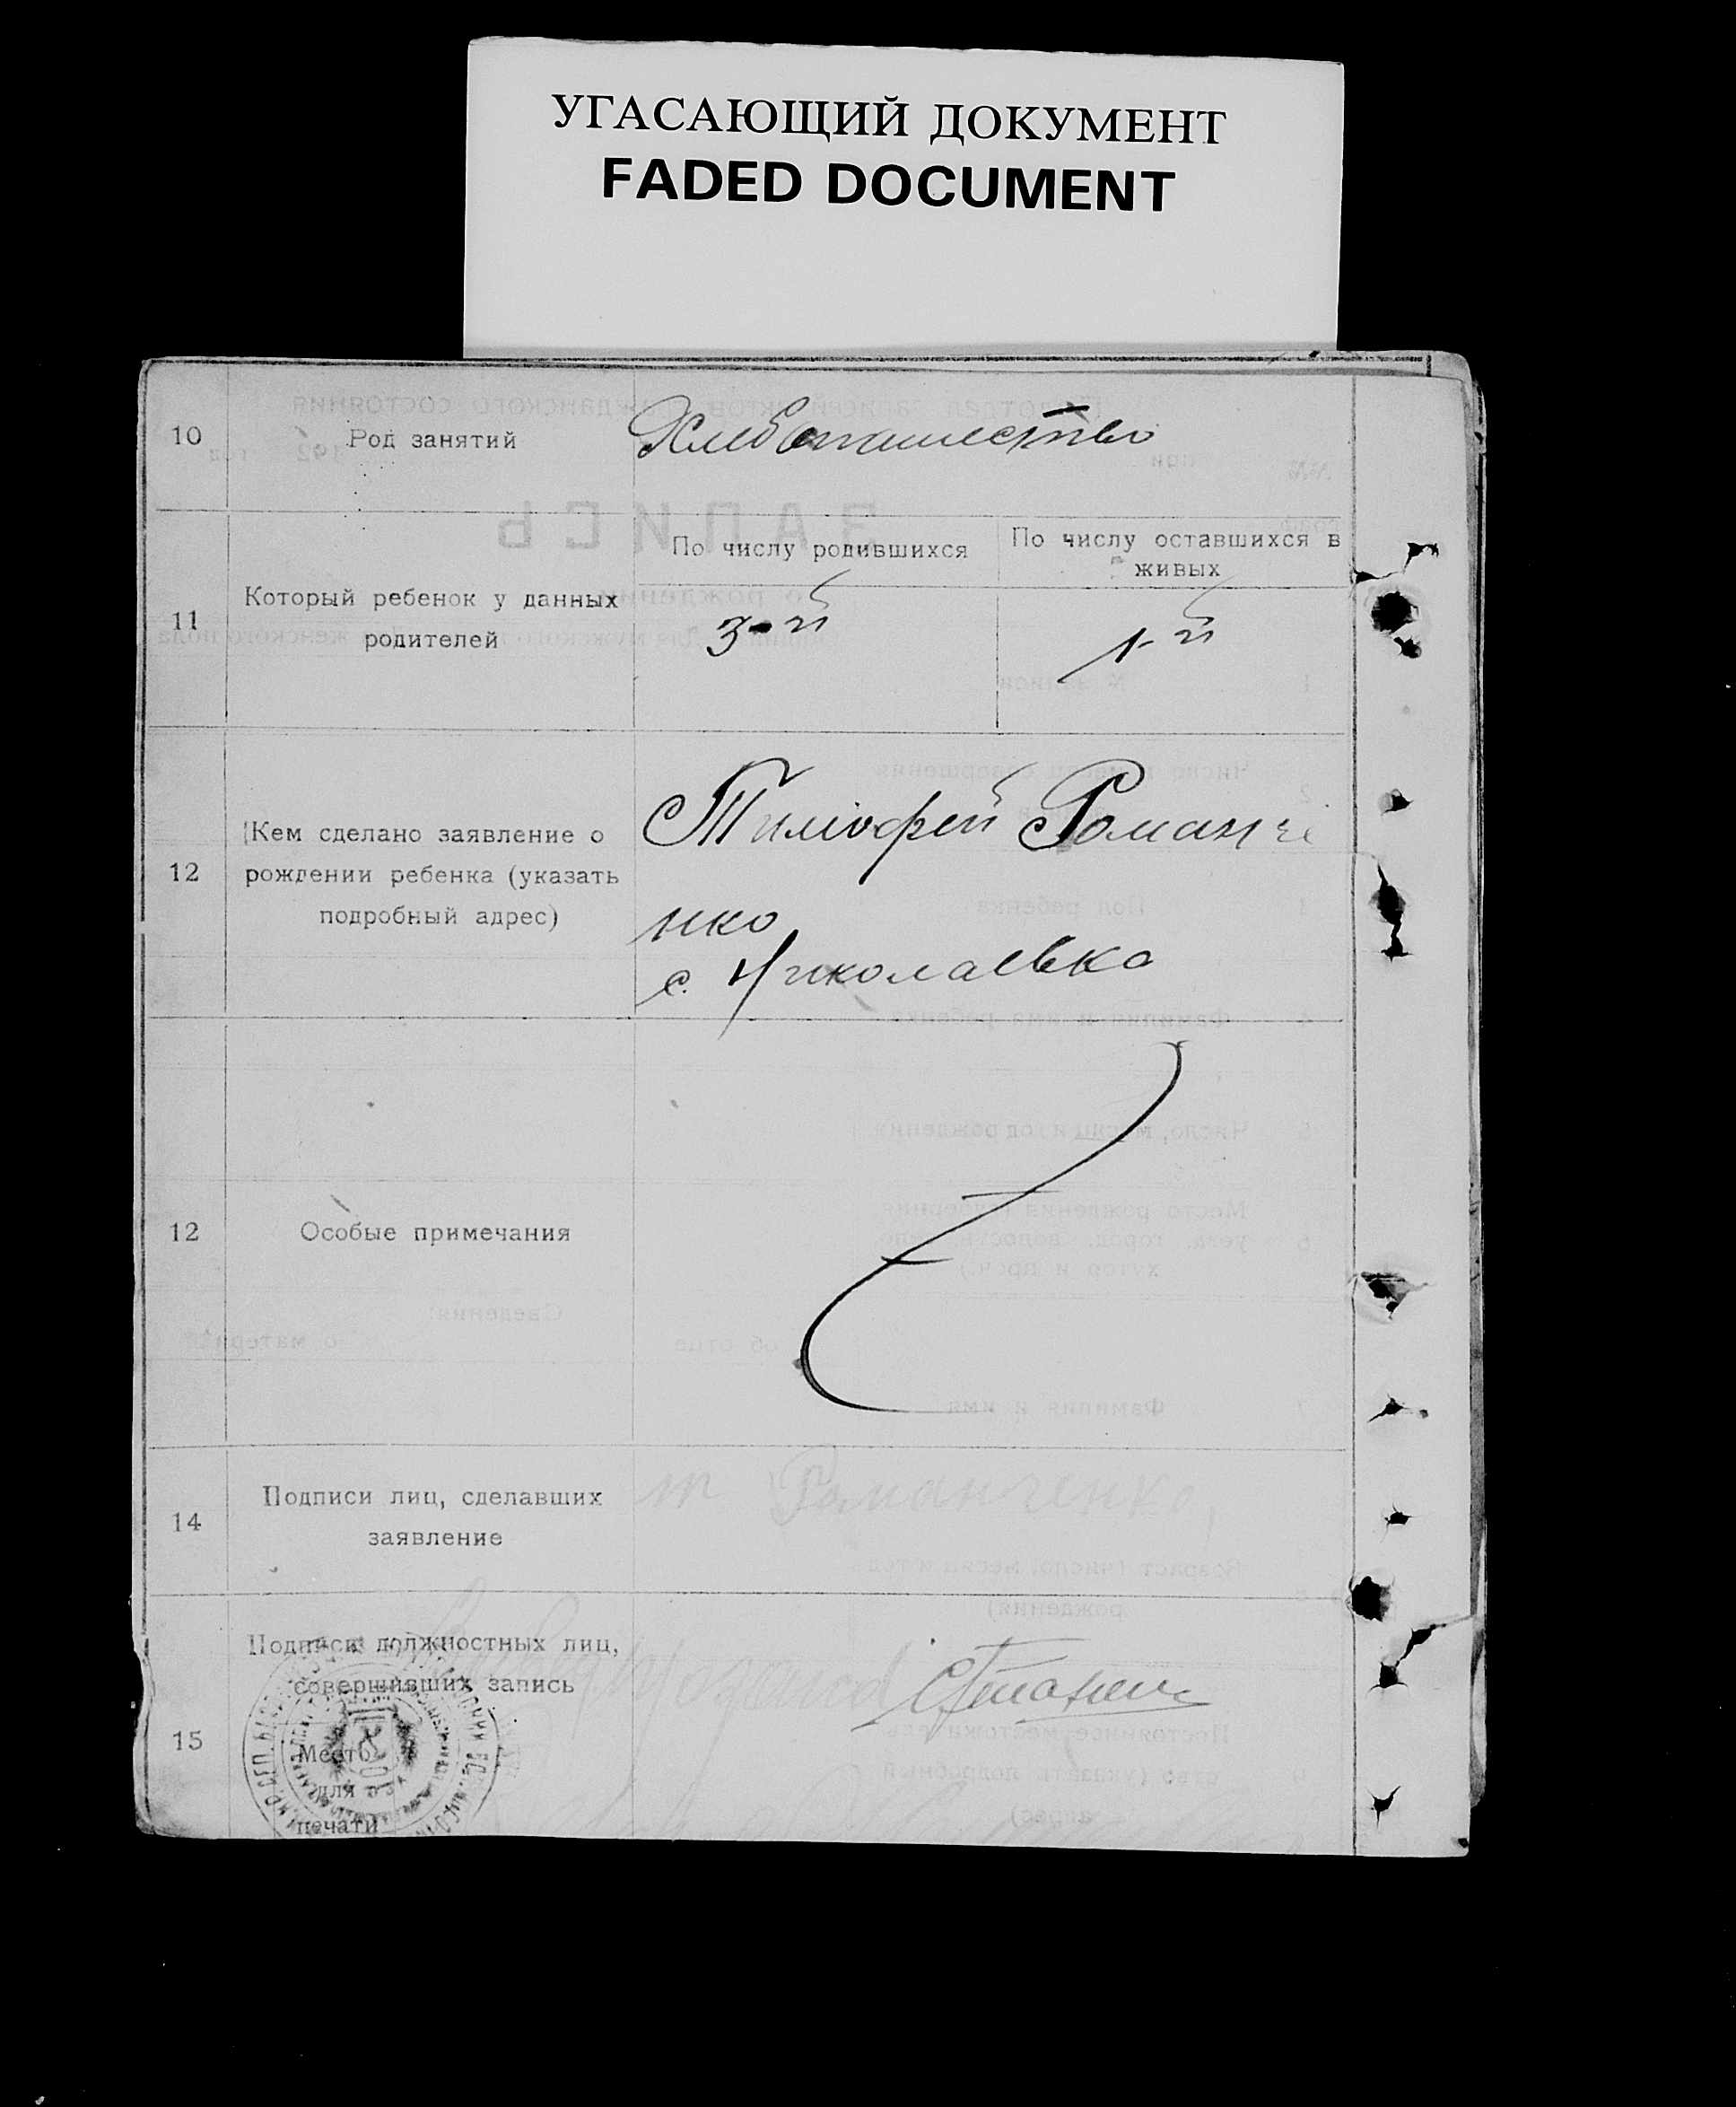 УГАСАЮЩИЙ ДОКУМЕНТ
FADED DOCUMENT
10
Род занятий
Хлебопашество
11
Который ребенок у данных
родителей
По числу родившихся
3-й
По числу оставшихся в
живых
1-й
12
Кем сделано заявление о
рождении ребенка (указать
подробный адрес)
Тимофей Романче
нко
с. Николаевка
12
Особые примечания
14
Подписи лиц, сделавших
заявление
Т Романченко
15
Подписи должностных лиц,
совершивших запись
Место
для
печати